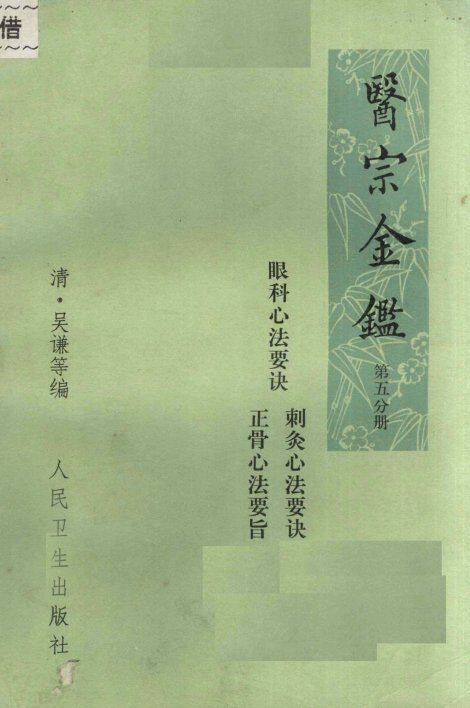 醫宗金鑑
第五分册
眼科心法要诀
刺灸心法要诀
正骨心法要旨
清·吴谦等编
人民卫生出版社
借